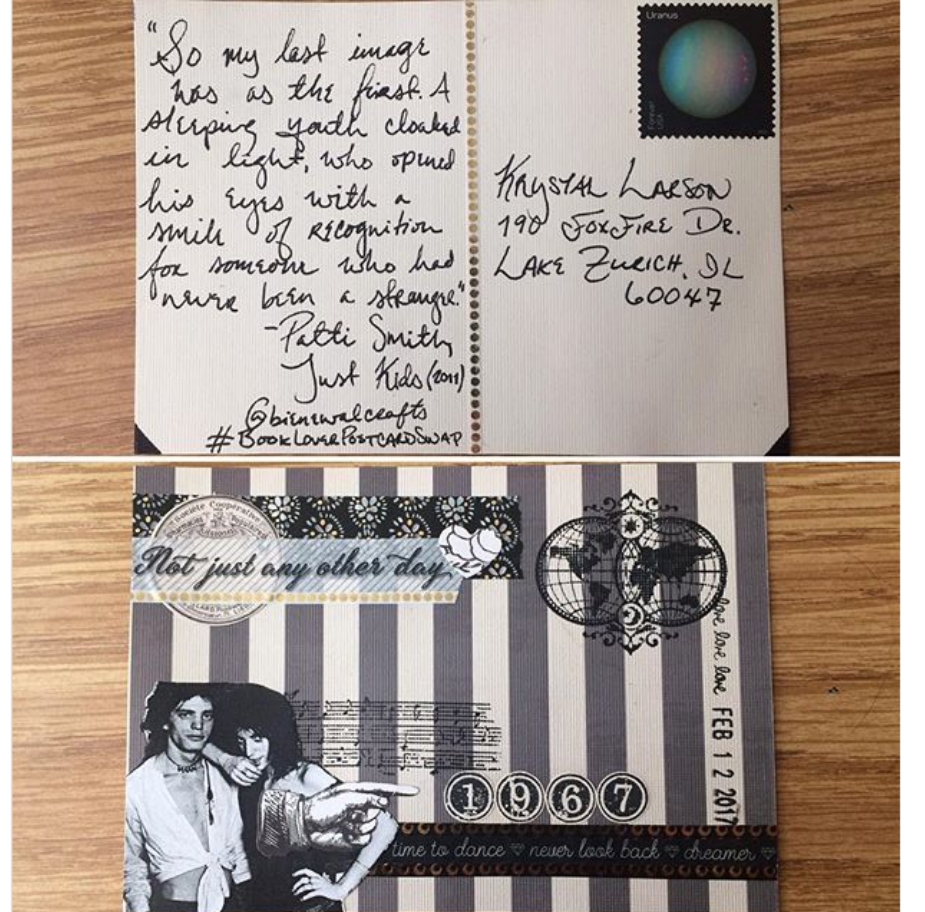 Uranus
Forever
USA
"So my last image
was as the first. A
sleeping youth cloaked
in light, who opened
his eyes with a
smile of recognition
for someone who had
never been a stranger."
-Patti Smith,
Just Kids (2011)
@bienewalcrafts
#BOOKLOVERPOSTCARDSWAP
KRYSTAL LARSON
190 FOXFIRE DR.
LAKE ZURICH, IL
60047
Société Coopérative
Not just any other day
love love love FEB 12 2017
1967
time to dance never look back dreamer